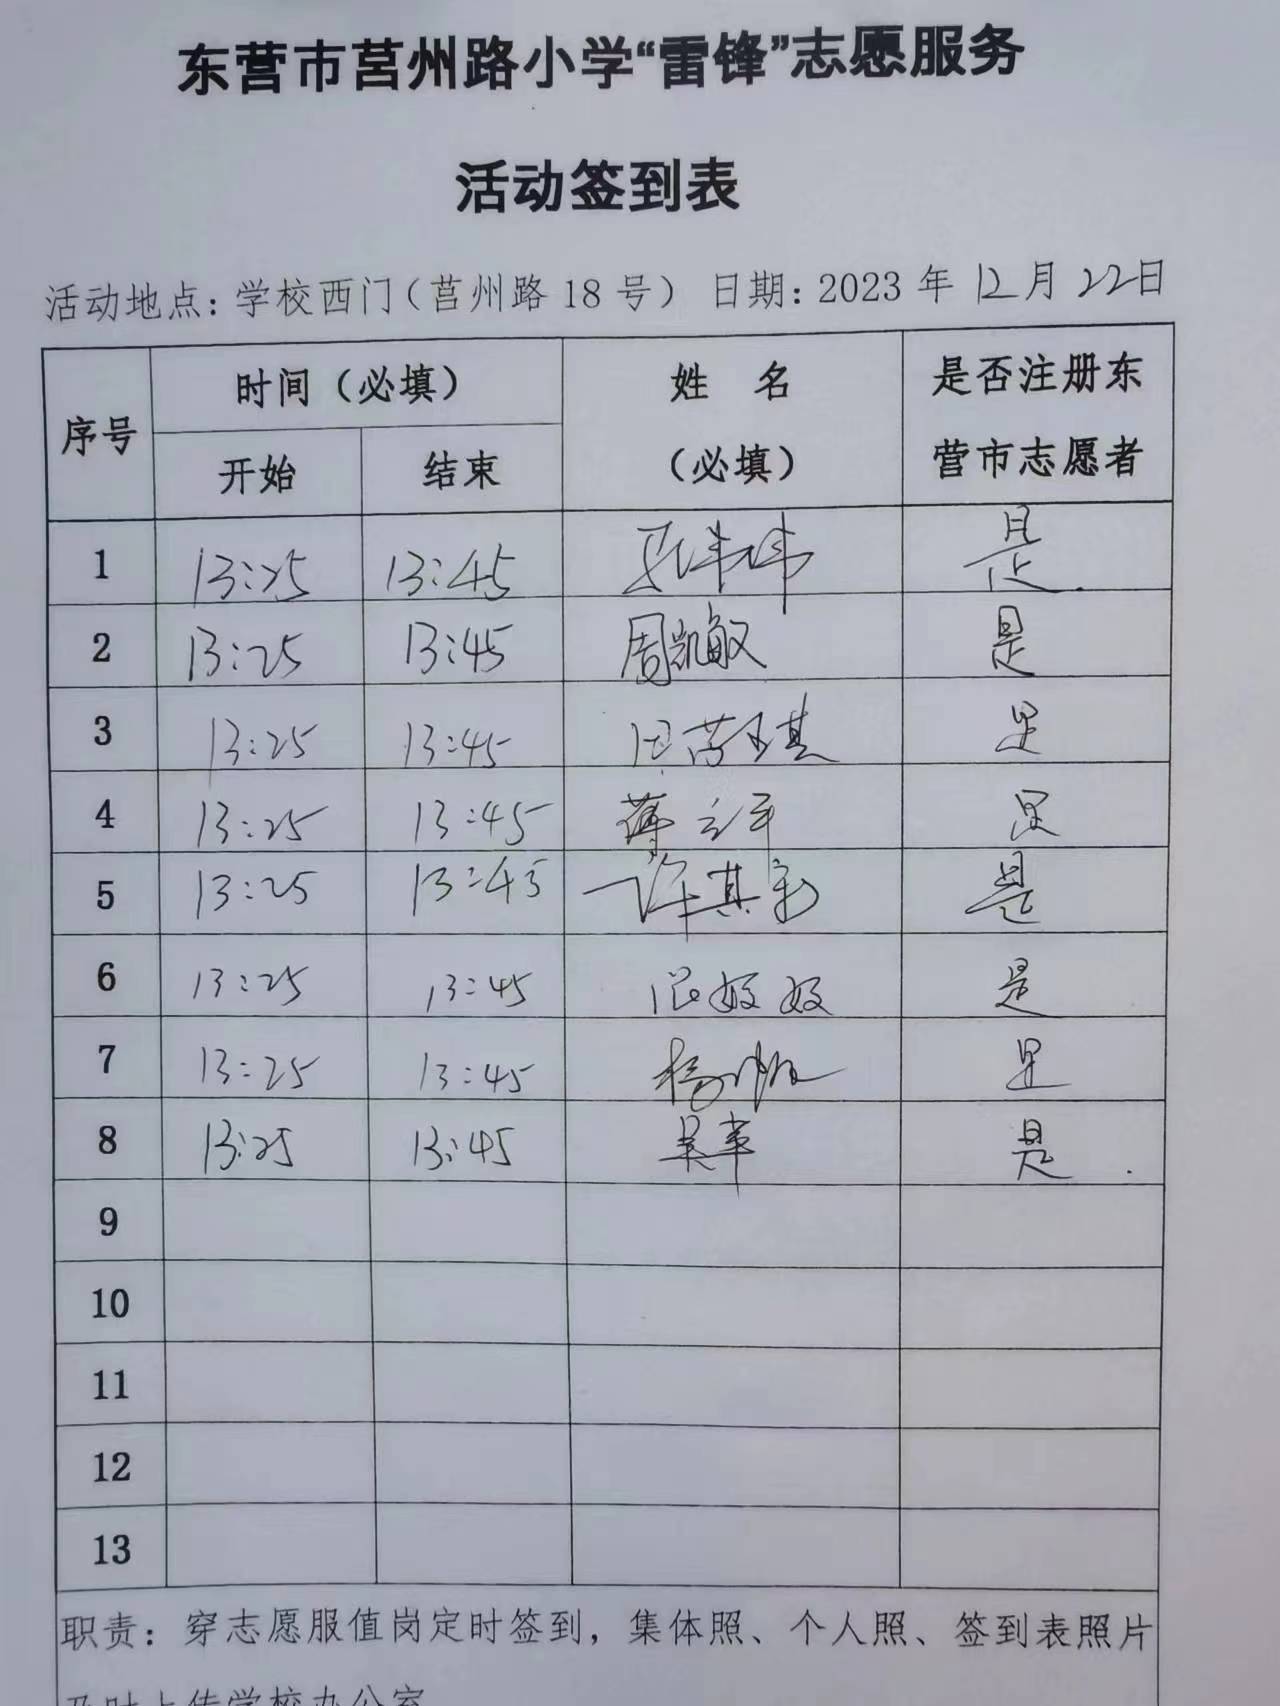 东营市莒州路小学“雷锋”志愿服务
活动签到表
活动地点：学校西门（莒州路 18 号） 日期：2023 年 12月 22日
序号 时间（必填） 姓 名 （必填） 是否注册东营市志愿者
开始 结束
1 13:25 13:45 是
2 13:25 13:45 周凯敏 是
3 13:25 13:45 是
4 13:25 13:45 是
5 13:25 13:45 许其 是
6 13:25 13:45 是
7 13:25 13:45 杨 是
8 13:25 13:45 吴苹 是
9
10
11
12
13
职责：穿志愿服值岗定时签到，集体照、个人照、签到表照片
及时上传学校办公室